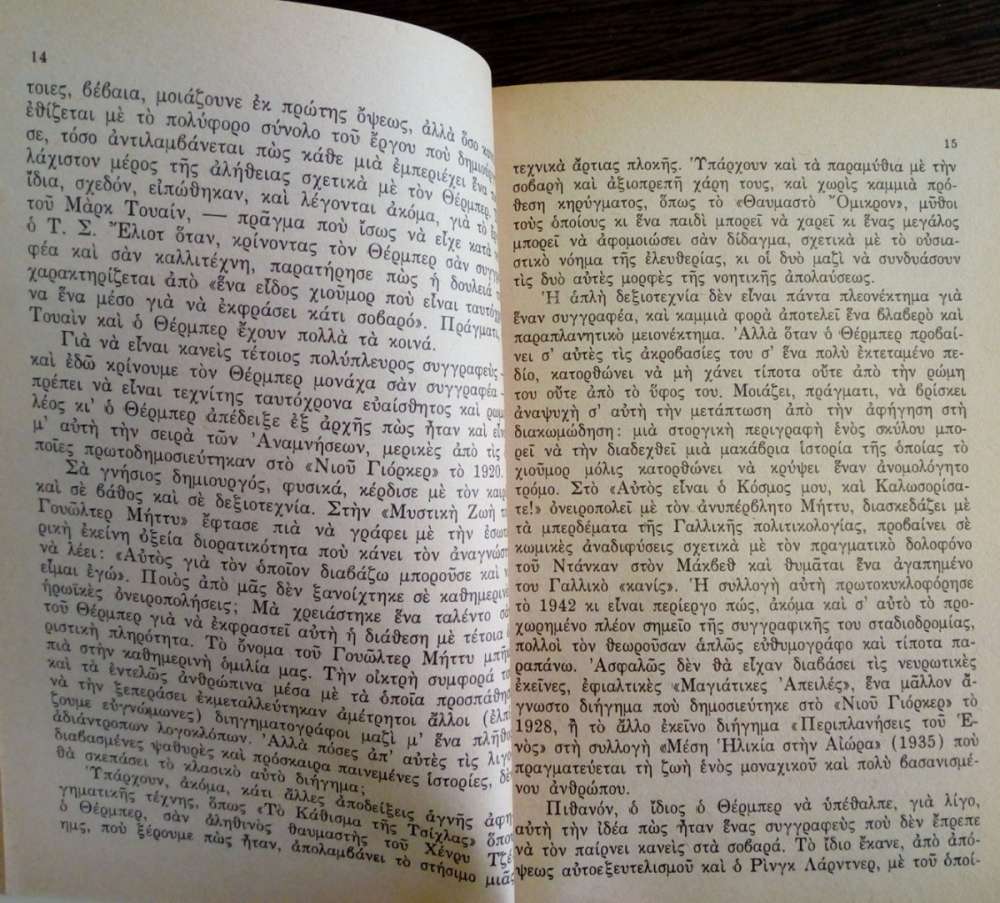 14
τοιες, βέβαια, μοιάζουνε ἐκ πρώτης ὄψεως, ἀλλὰ ὅσο
ἐθίζεται μὲ τὸ πολύφορο σύνολο τοῦ ἔργου ποὺ
σε, τόσο ἀντιλαμβάνεται πὼς κάθε μιὰ ἐμπεριέχει ἕνα
λάχιστον μέρος τῆς ἀλήθειας σχετικὰ μὲ τὸν Θέρμπερ.
ἴδια, σχεδόν, εἰπώθηκαν, καὶ λέγονται ἀκόμα, γιὰ τὸ
τοῦ Μὰρκ Τουαίν, — πρᾶγμα ποὺ ἴσως νὰ εἶχε κατὰ
ὁ Τ. Σ. Ἔλιοτ ὅταν, κρίνοντας τὸν Θέρμπερ σὰν
φέα καὶ σὰν καλλιτέχνη, παρατήρησε πὼς ἡ δουλειά
χαρακτηρίζεται ἀπὸ «ἕνα εἶδος χιοῦμορ ποὺ εἶναι
να ἕνα μέσο γιὰ νὰ ἐκφράσει κάτι σοβαρό». Πράγματι,
Τουαίν καὶ ὁ Θέρμπερ ἔχουν πολλὰ τὰ κοινά.
Γιὰ νὰ εἶναι κανεὶς τέτοιος πολύπλευρος συγγραφεὺς –
καὶ ἐδῶ κρίνουμε τὸν Θέρμπερ μονάχα σὰν συγγραφέα –
πρέπει νὰ εἶναι τεχνίτης ταυτόχρονα εὐαίσθητος καὶ
λέος κι' ὁ Θέρμπερ ἀπέδειξε ἐξ ἀρχῆς πὼς ἦταν καὶ
μ' αὐτὴ τὴν σειρὰ τῶν Ἀναμνήσεων, μερικὲς ἀπὸ τὶς
ποῖες πρωτοδημοσιεύτηκαν στὸ «Νιοῦ Γιόρκερ» τὸ 1920.
Σὰ γνήσιος δημιουργός, φυσικά, κέρδισε μὲ τὸν
καὶ σὲ βάθος καὶ σὲ δεξιοτεχνία. Στὴν «Μυστικὴ Ζωὴ
Γουῶλτερ Μήττυ» ἔφτασε πιὰ νὰ γράφει μὲ τὴν
ρικὴ ἐκείνη ὀξεία διορατικότητα ποὺ κάνει τὸν
νὰ λέει: «Αὐτὸς γιὰ τὸν ὁποῖον διαβάζω μποροῦσε καὶ
εἶμαι ἐγώ». Ποιὸς ἀπὸ μᾶς δὲν ξανοίχτηκε σὲ
ἡρωϊκὲς ὀνειροπολήσεις; Μὰ χρειάστηκε ἕνα ταλέντο
τοῦ Θέρμπερ γιὰ νὰ ἐκφραστεῖ αὐτὴ ἡ διάθεση μὲ τέτοια
ριστικὴ πληρότητα. Τὸ ὄνομα τοῦ Γουῶλτερ Μήττυ
πιὰ στὴν καθημερινὴ ὁμιλία μας. Τὴν οἰκτρὴ συμφορά
καὶ τὰ ἐντελῶς ἀνθρώπινα μέσα μὲ τὰ ὁποῖα
νὰ τὴν ξεπεράσει ἐκμεταλλεύτηκαν ἀμέτρητοι ἄλλοι
ζουμε εὐγνώμονες) διηγηματογράφοι μαζὶ μ' ἕνα
ἀδιάντροπων λογοκλόπων. Ἀλλὰ πόσες ἀπ' αὐτὲς τὶς
διαβασμένες ψαθυρὲς καὶ πρόσκαιρα παινεμένες ἱστορίες,
θὰ σκεπάσει τὸ κλασικὸ αὐτὸ διήγημα;
Ὑπάρχουν, ἀκόμα, κάτι ἄλλες ἀποδείξεις ἁγνῆς
γηματικῆς τέχνης, ὅπως «Τὸ Κάθισμα τῆς Τσίχλας» ὅπου
ὁ Θέρμπερ, σὰν ἀληθινὸς θαυμαστὴς τοῦ Χένρυ
ημς, ποὺ ξέρουμε πὼς ἦταν, ἀπολαμβάνει τὸ στήσιμο μιᾶς
15
τεχνικὰ ἄρτιας πλοκῆς. Ὑπάρχουν καὶ τὰ παραμύθια μὲ τὴν
σοβαρὴ καὶ ἀξιοπρεπῆ χάρη τους, καὶ χωρὶς καμμιὰ πρό-
θεση κηρύγματος, ὅπως τὸ «Θαυμαστὸ Ὄμικρον», μῦθοι
τοὺς ὁποίους κι ἕνα παιδὶ μπορεῖ νὰ χαρεῖ κι ἕνας μεγάλος
μπορεῖ νὰ ἀφομοιώσει σὰν δίδαγμα, σχετικὰ μὲ τὸ οὐσια-
στικὸ νόημα τῆς ἐλευθερίας, κι οἱ δυὸ μαζὶ νὰ συνδυάσουν
τὶς δυὸ αὐτὲς μορφὲς τῆς νοητικῆς ἀπολαύσεως.
Ἡ ἁπλὴ δεξιοτεχνία δὲν εἶναι πάντα πλεονέκτημα γιὰ
ἕναν συγγραφέα, καὶ καμμιὰ φορὰ ἀποτελεῖ ἕνα βλαβερὸ καὶ
παραπλανητικὸ μειονέκτημα. Ἀλλὰ ὅταν ὁ Θέρμπερ προβαί-
νει σ' αὐτὲς τὶς ἀκροβασίες του σ' ἕνα πολὺ ἐκτεταμένο πε-
δίο, κατορθώνει νὰ μὴ χάνει τίποτα οὔτε ἀπὸ τὴν ρώμη
του οὔτε ἀπὸ τὸ ὕφος του. Μοιάζει, πράγματι, νὰ βρίσκει
ἀναψυχὴ σ' αὐτὴ τὴν μετάπτωση ἀπὸ τὴν ἀφήγηση στὴ
διακωμώδηση: μιὰ στοργικὴ περιγραφὴ ἑνὸς σκύλου μπο-
ρεῖ νὰ τὴν διαδεχθεῖ μιὰ μακάβρια ἱστορία τῆς ὁποίας τὸ
χιοῦμορ μόλις κατορθώνει νὰ κρύψει ἕναν ἀνομολόγητο
τρόμο. Στὸ «Αὐτὸς εἶναι ὁ Κόσμος μου, καὶ Καλωσορίσα-
τε!» ὀνειροπολεῖ μὲ τὸν ἀνυπέρβλητο Μήττυ, διασκεδάζει μὲ
τὰ μπερδέματα τῆς Γαλλικῆς πολιτικολογίας, προβαίνει σὲ
κωμικὲς ἀναδιφύσεις σχετικὰ μὲ τὸν πραγματικὸ δολοφόνο
τοῦ Ντάνκαν στὸν Μάκβεθ καὶ θυμᾶται ἕνα ἀγαπημένο
του Γαλλικὸ «κανίς». Ἡ συλλογὴ αὐτὴ πρωτοκυκλοφόρησε
τὸ 1942 κι εἶναι περίεργο πώς, ἀκόμα καὶ σ' αὐτὸ τὸ προ-
χωρημένο πλέον σημεῖο τῆς συγγραφικῆς του σταδιοδρομίας,
πολλοὶ τὸν θεωροῦσαν ἁπλῶς εὐθυμογράφο καὶ τίποτα πα-
ραπάνω. Ἀσφαλῶς δὲν θὰ εἶχαν διαβάσει τὶς νευρωτικὲς
ἐκεῖνες, ἐφιαλτικὲς «Μαγιάτικες Ἀπειλές», ἕνα μᾶλλον ἄ-
γνωστο διήγημα ποὺ δημοσιεύτηκε στὸ «Νιοῦ Γιόρκερ» τὸ
1928, ἢ τὸ ἄλλο ἐκεῖνο διήγημα «Περιπλανήσεις τοῦ Ἑ-
νὸς» στὴ συλλογὴ «Μέση Ἡλικία στὴν Αἰώρα» (1935) ποὺ
πραγματεύεται τὴ ζωὴ ἑνὸς μοναχικοῦ καὶ πολὺ βασανισμέ-
νου ἀνθρώπου.
Πιθανόν, ὁ ἴδιος ὁ Θέρμπερ νὰ ὑπέθαλπε, γιὰ λίγο,
αὐτὴ τὴν ἰδέα πὼς ἦταν ἕνας συγγραφεὺς ποὺ δὲν ἔπρεπε
νὰ τὸν παίρνει κανεὶς στὰ σοβαρά. Τὸ ἴδιο ἔκανε, ἀπὸ ἀπό-
ψεως αὐτοεξευτελισμοῦ καὶ ὁ Ρὶνγκ Λάρντνερ, μὲ τοῦ ὁποί-